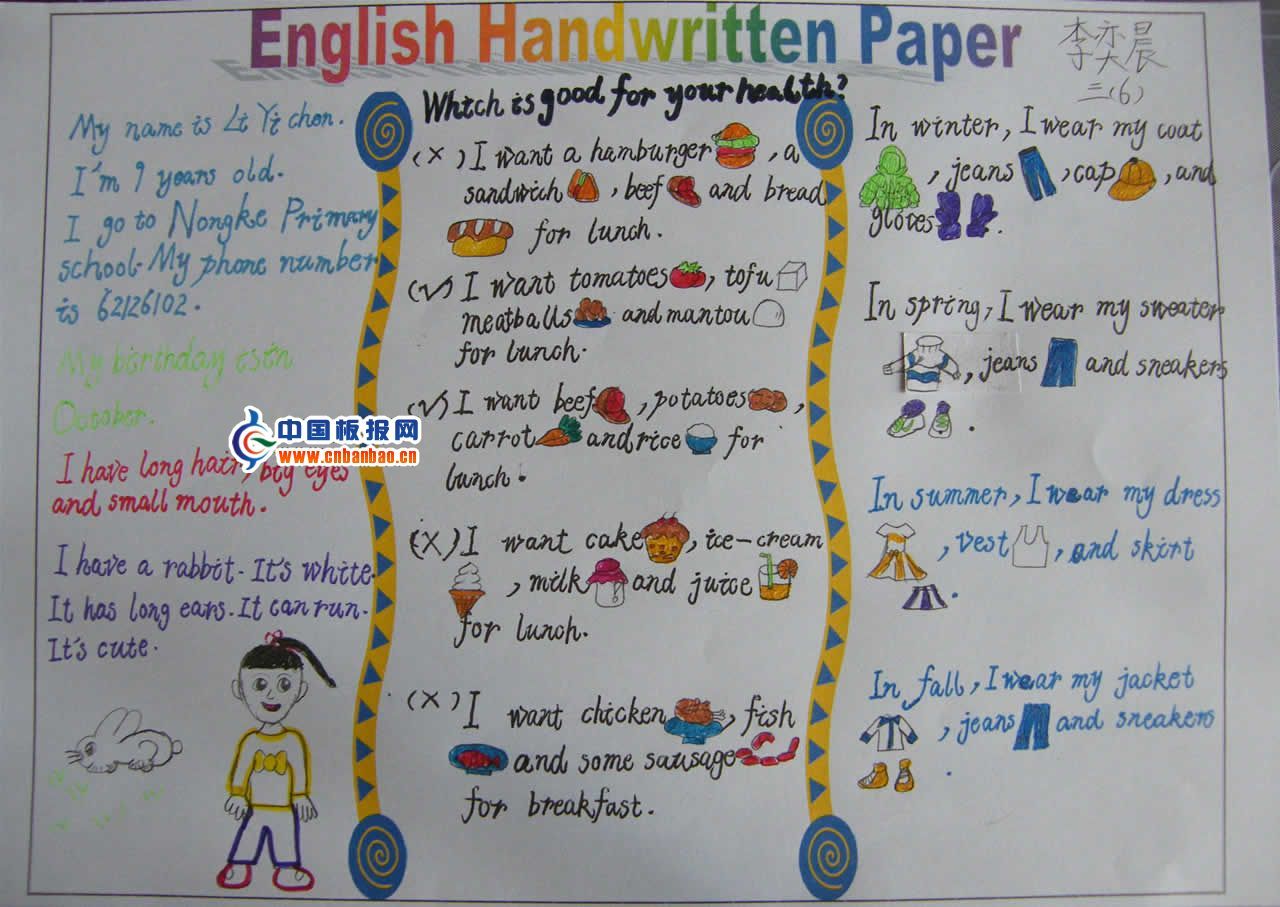 English Handwritten Paper
李亦晨
三(6)
My name is Li Yi chen.
I'm 9 years old.
I go to Nongke Primary
school. My phone number
is 62126102.
My birthday is in
October.
I have long hair, big eyes
and small mouth.
I have a rabbit. It's white.
It has long ears. It can run.
It's cute.
中国板报网
www.cnbanbao.cn
Which is good for your health?
(×) I want a hamburger, a
sandwich, beef and bread
for lunch.
(√) I want tomatoes, tofu
meatballs and mantou
for lunch.
(√) I want beef, potatoes,
carrot and rice for
lunch.
(×) I want cake, ice-cream
, milk and juice
for lunch.
(×) I want chicken, fish
and some sausage
for breakfast.
In winter, I wear my coat
, jeans, cap, and
gloves.
In spring, I wear my sweater
, jeans and sneakers
.
In summer, I wear my dress
, vest, and skirt
.
In fall, I wear my jacket
, jeans and sneakers
.